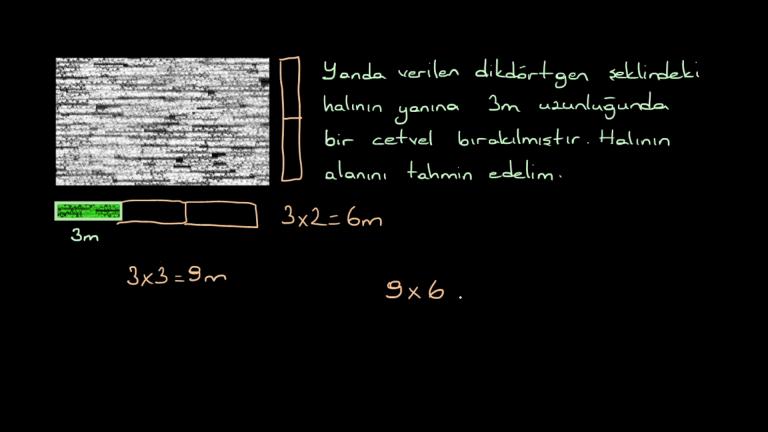 Yanda verilen dikdörtgen şeklindeki
halının yanına 3m uzunluğunda
bir cetvel bırakılmıştır. Halının
alanını tahmin edelim.
3x2=6m
3m
3x3=9m
9x6.